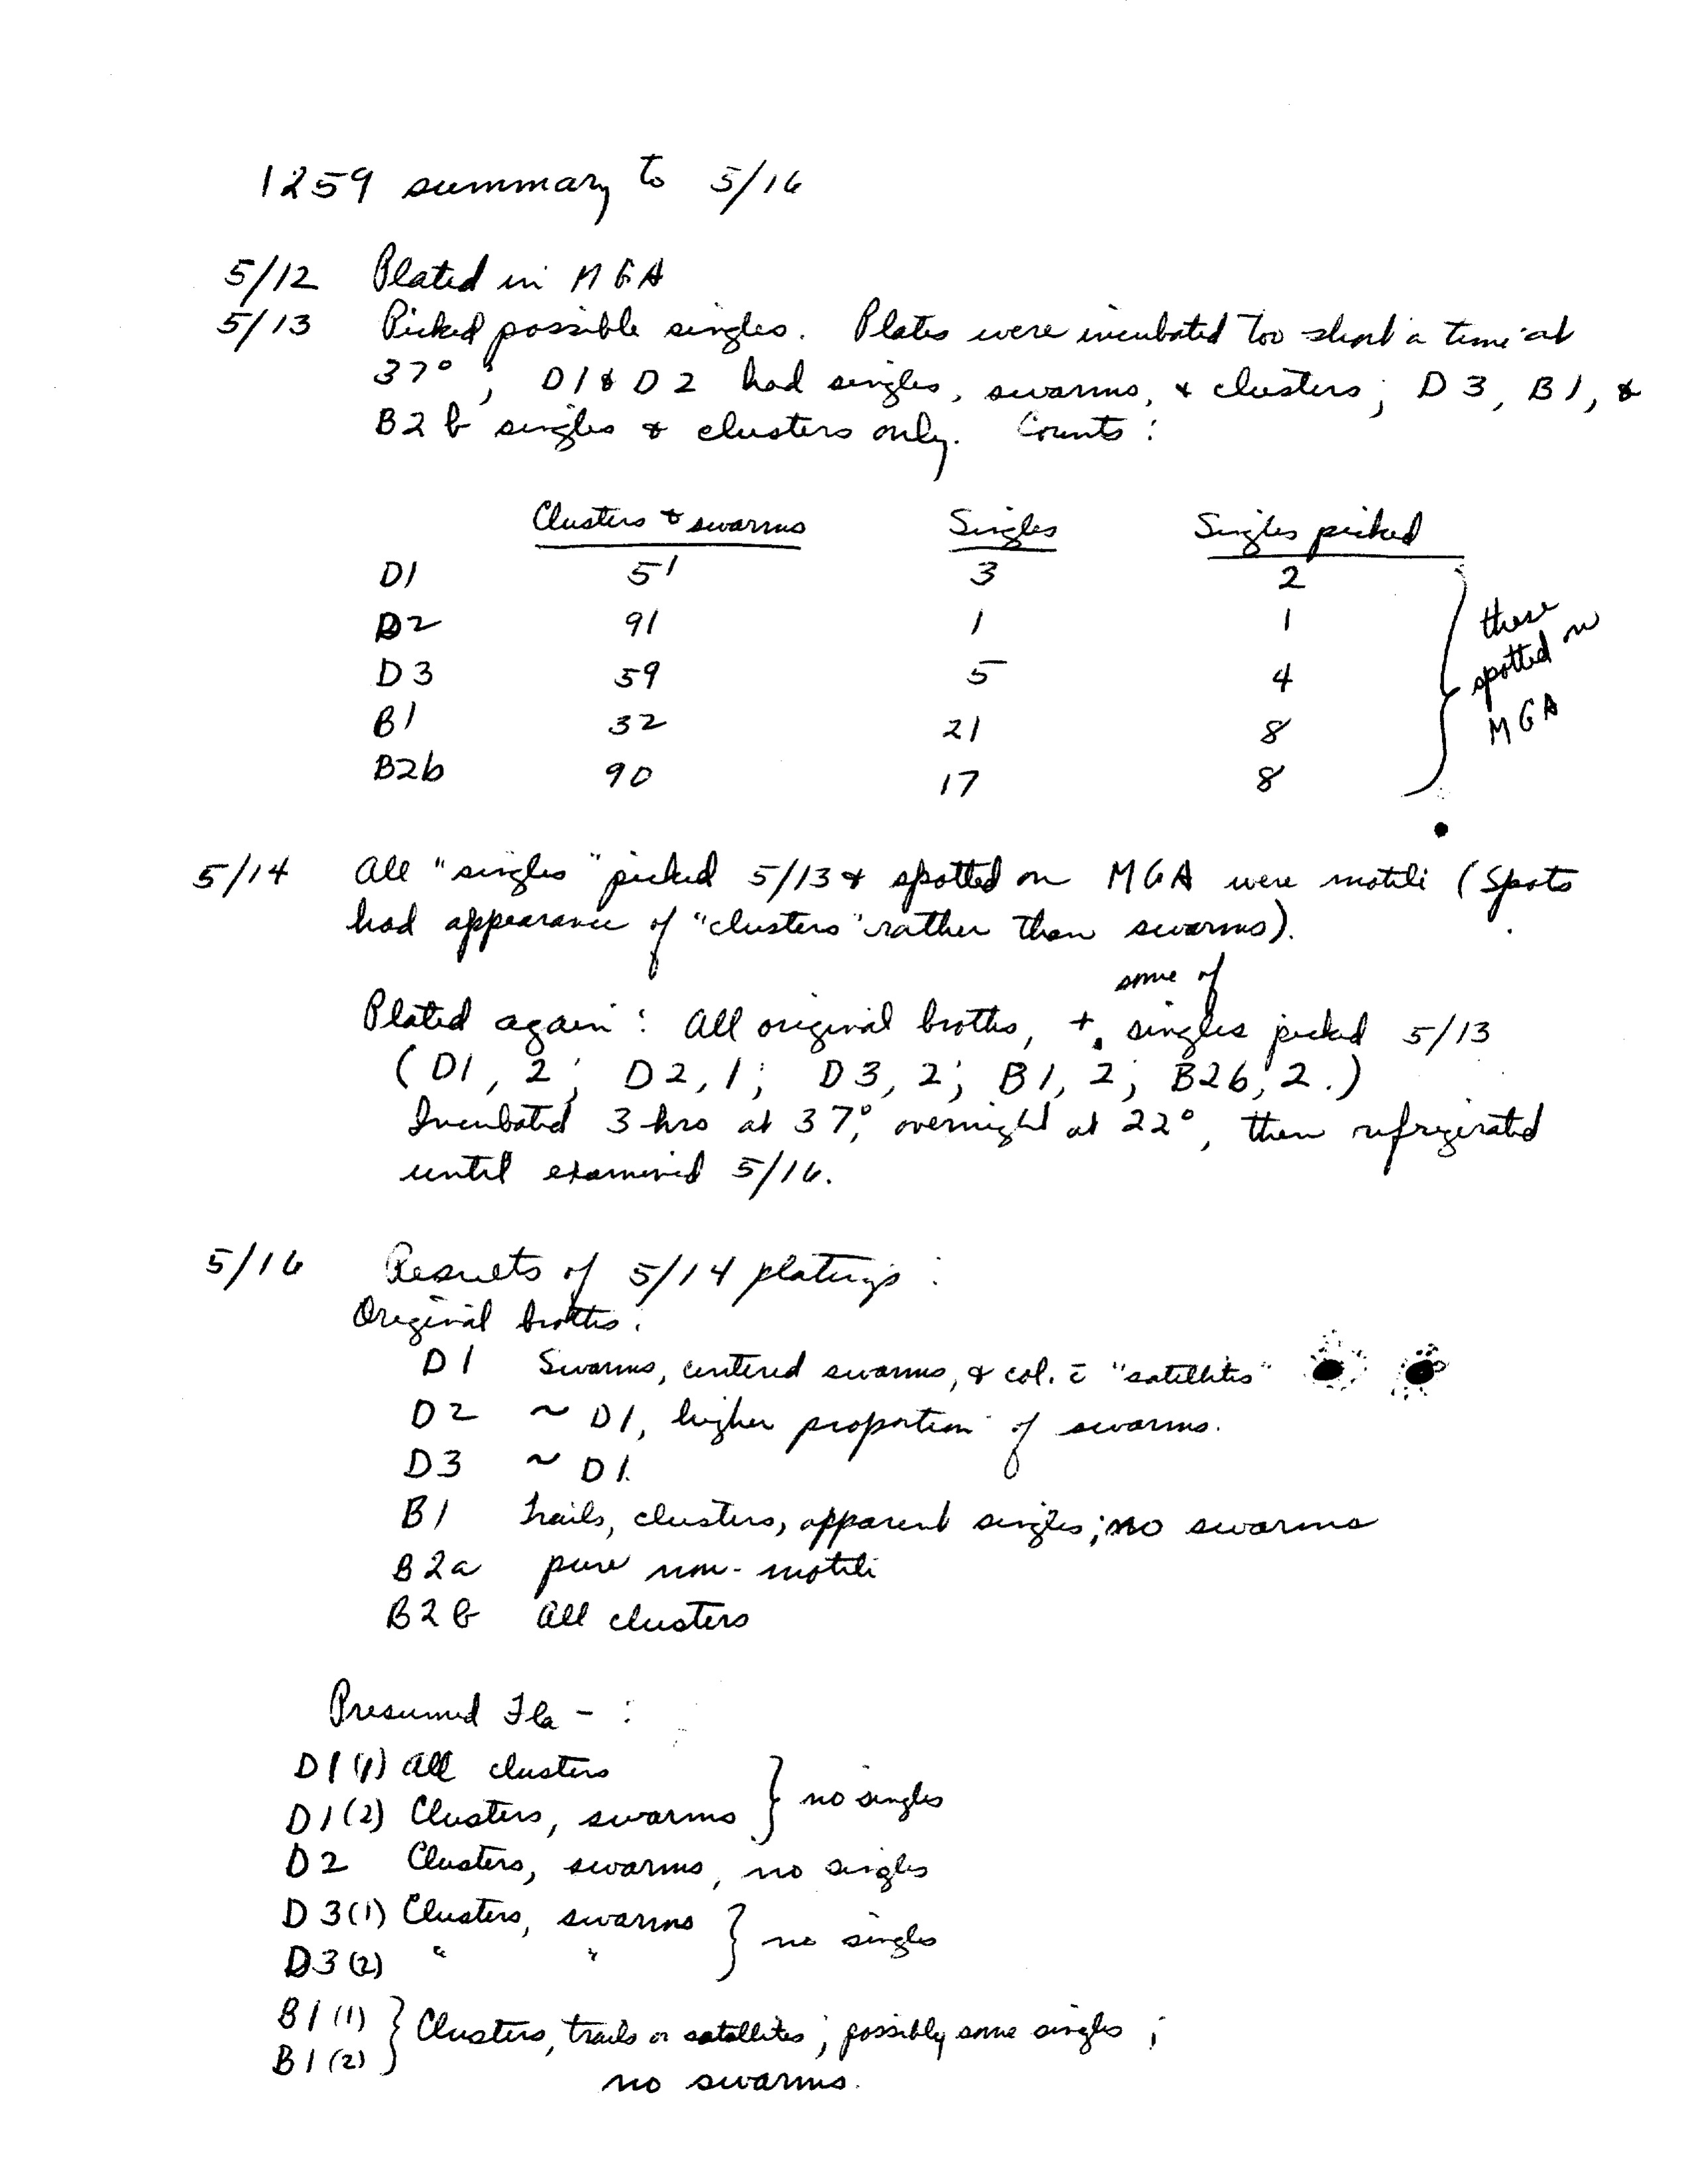 1259 summary to 5/16
5/12 Plated in MGA
5/13 Picked possible singles. Plates were incubated too short a time at
37°; D1 & D2 had singles, swarms, & clusters; D3, B1, &
B2b singles & clusters only. Counts:
Clusters & swarms Singles Singles picked
D1 51 3 2
D2 91 1 1
D3 59 5 4
B1 32 21 8
B2b 90 17 8
these
spotted on
MGA
5/14 All "singles" picked 5/13 & spotted on MGA were motile (Spots
had appearance of "clusters" rather than swarms).
some of
Plated again: All original broths, + singles picked 5/13
(D1, 2; D2, 1; D3, 2; B1, 2; B2b, 2.)
Incubated 3 hrs at 37°, overnight at 22°, then refrigerated
until examined 5/16.
5/16 Results of 5/14 platings:
Original broths:
D1 Swarms, centered swarms, & col. c̄ "satellites"
D2 ~ D1, higher proportion of swarms.
D3 ~ D1.
B1 Trails, clusters, apparent singles; no swarms
B2a pure non-motile
B2b All clusters
Presumed Fla - :
D1(1) All clusters
D1(2) Clusters, swarms } no singles
D2 Clusters, swarms, no singles
D3(1) Clusters, swarms } no singles
D3(2) " "
B1(1) } Clusters, trails or satellites; possibly some singles;
B1(2)
no swarms.